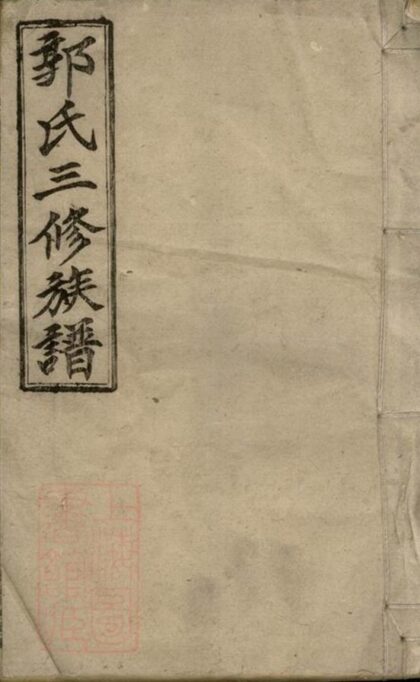 郭氏三修族譜